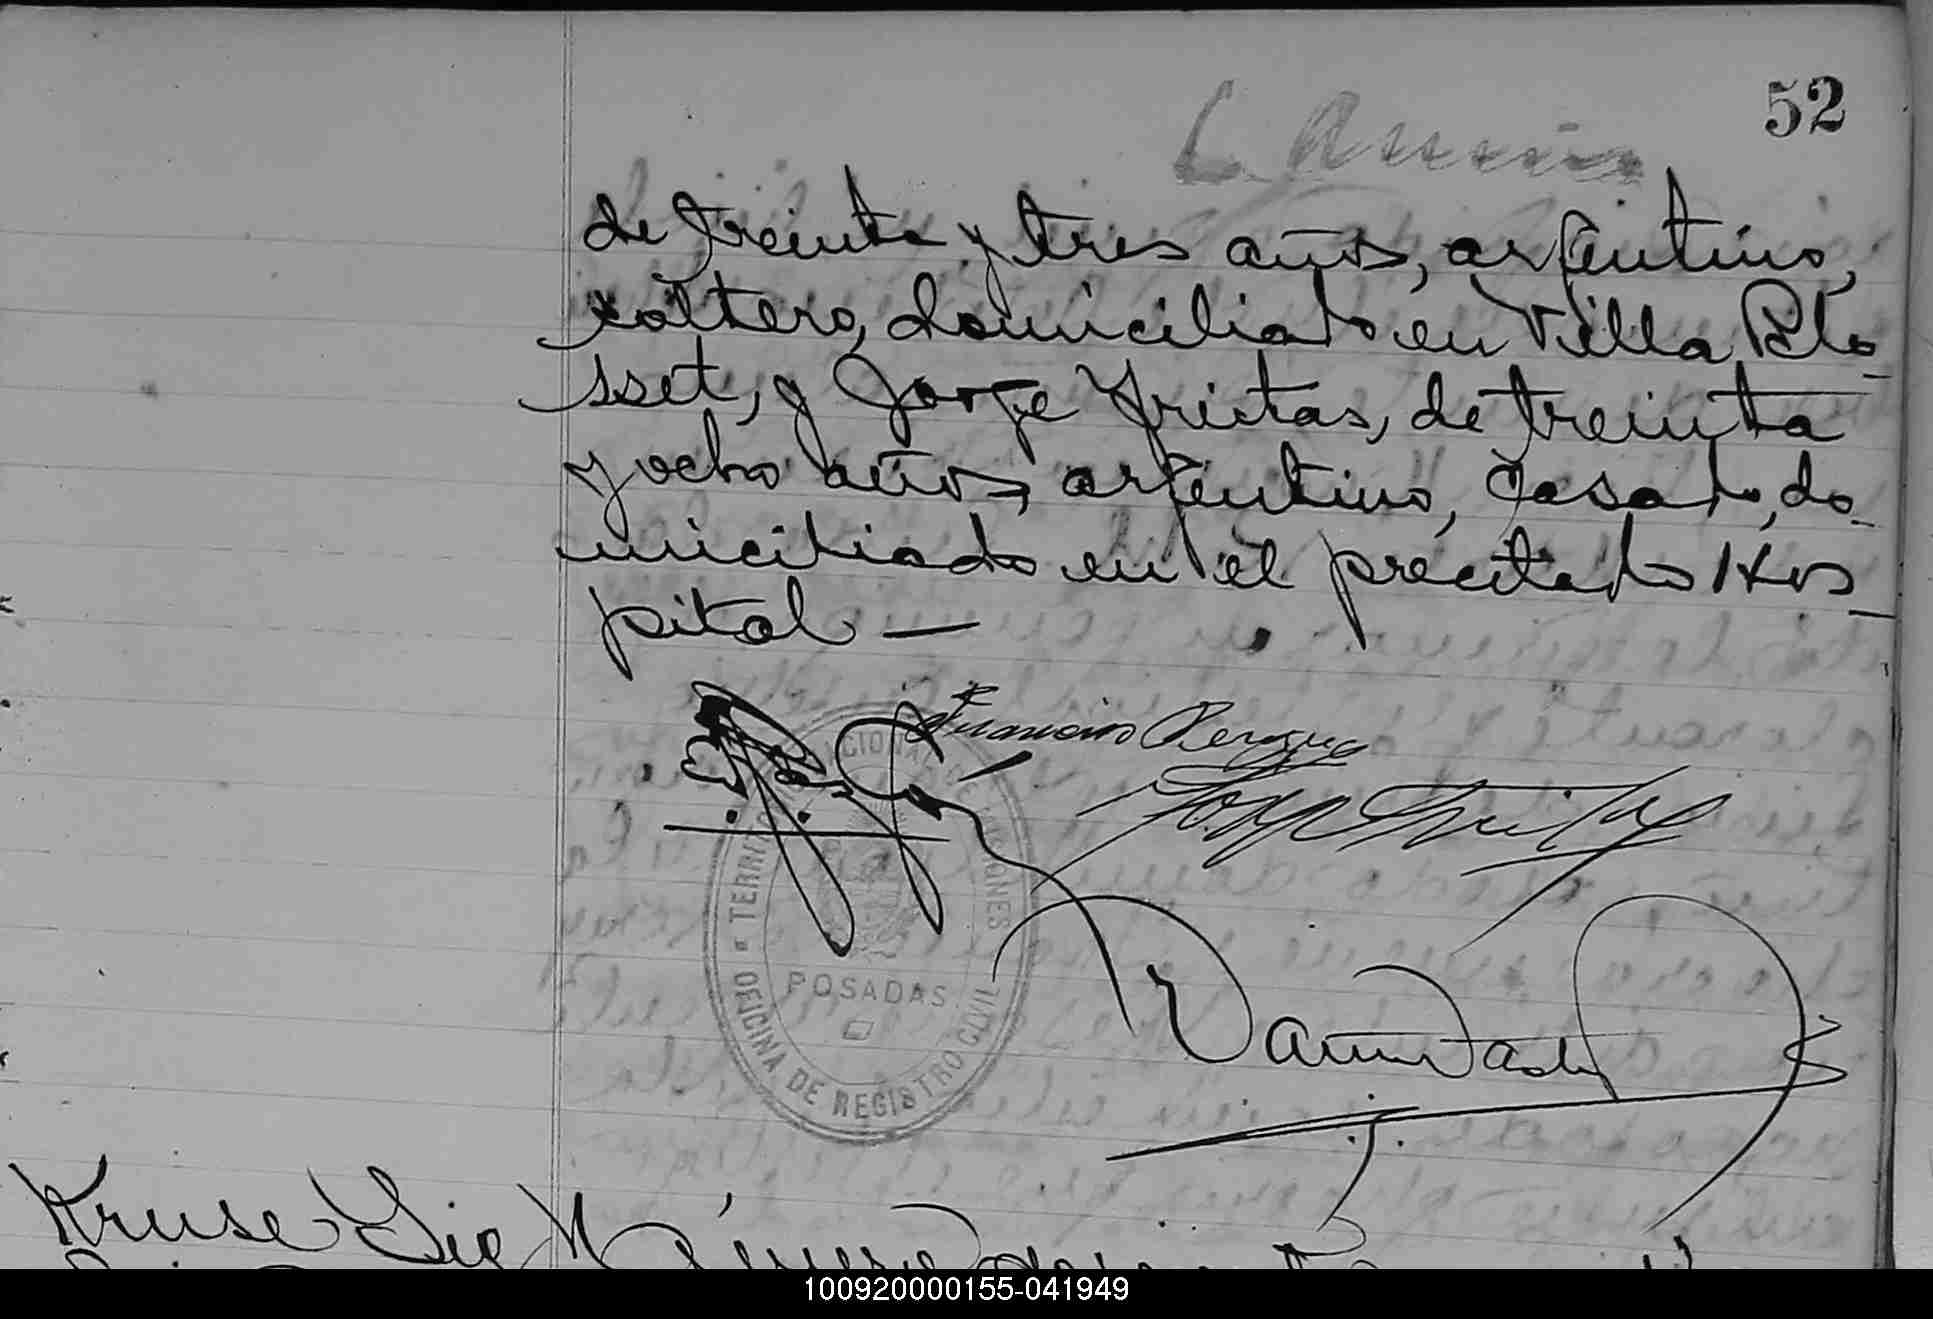 52
de treinta y tres años, argentino,
soltero, domiciliado en Villa Blo-
sset, y Jorge Freitas, de treinta
y ocho años, argentino, casado, do-
miciliado en el precitado Hos-
pital —
Francisco
Jorge Freitas
TERRITORIO NACIONAL DE MISIONES
POSADAS
OFICINA DE REGISTRO CIVIL
Kruse
Número
100920000155-041949